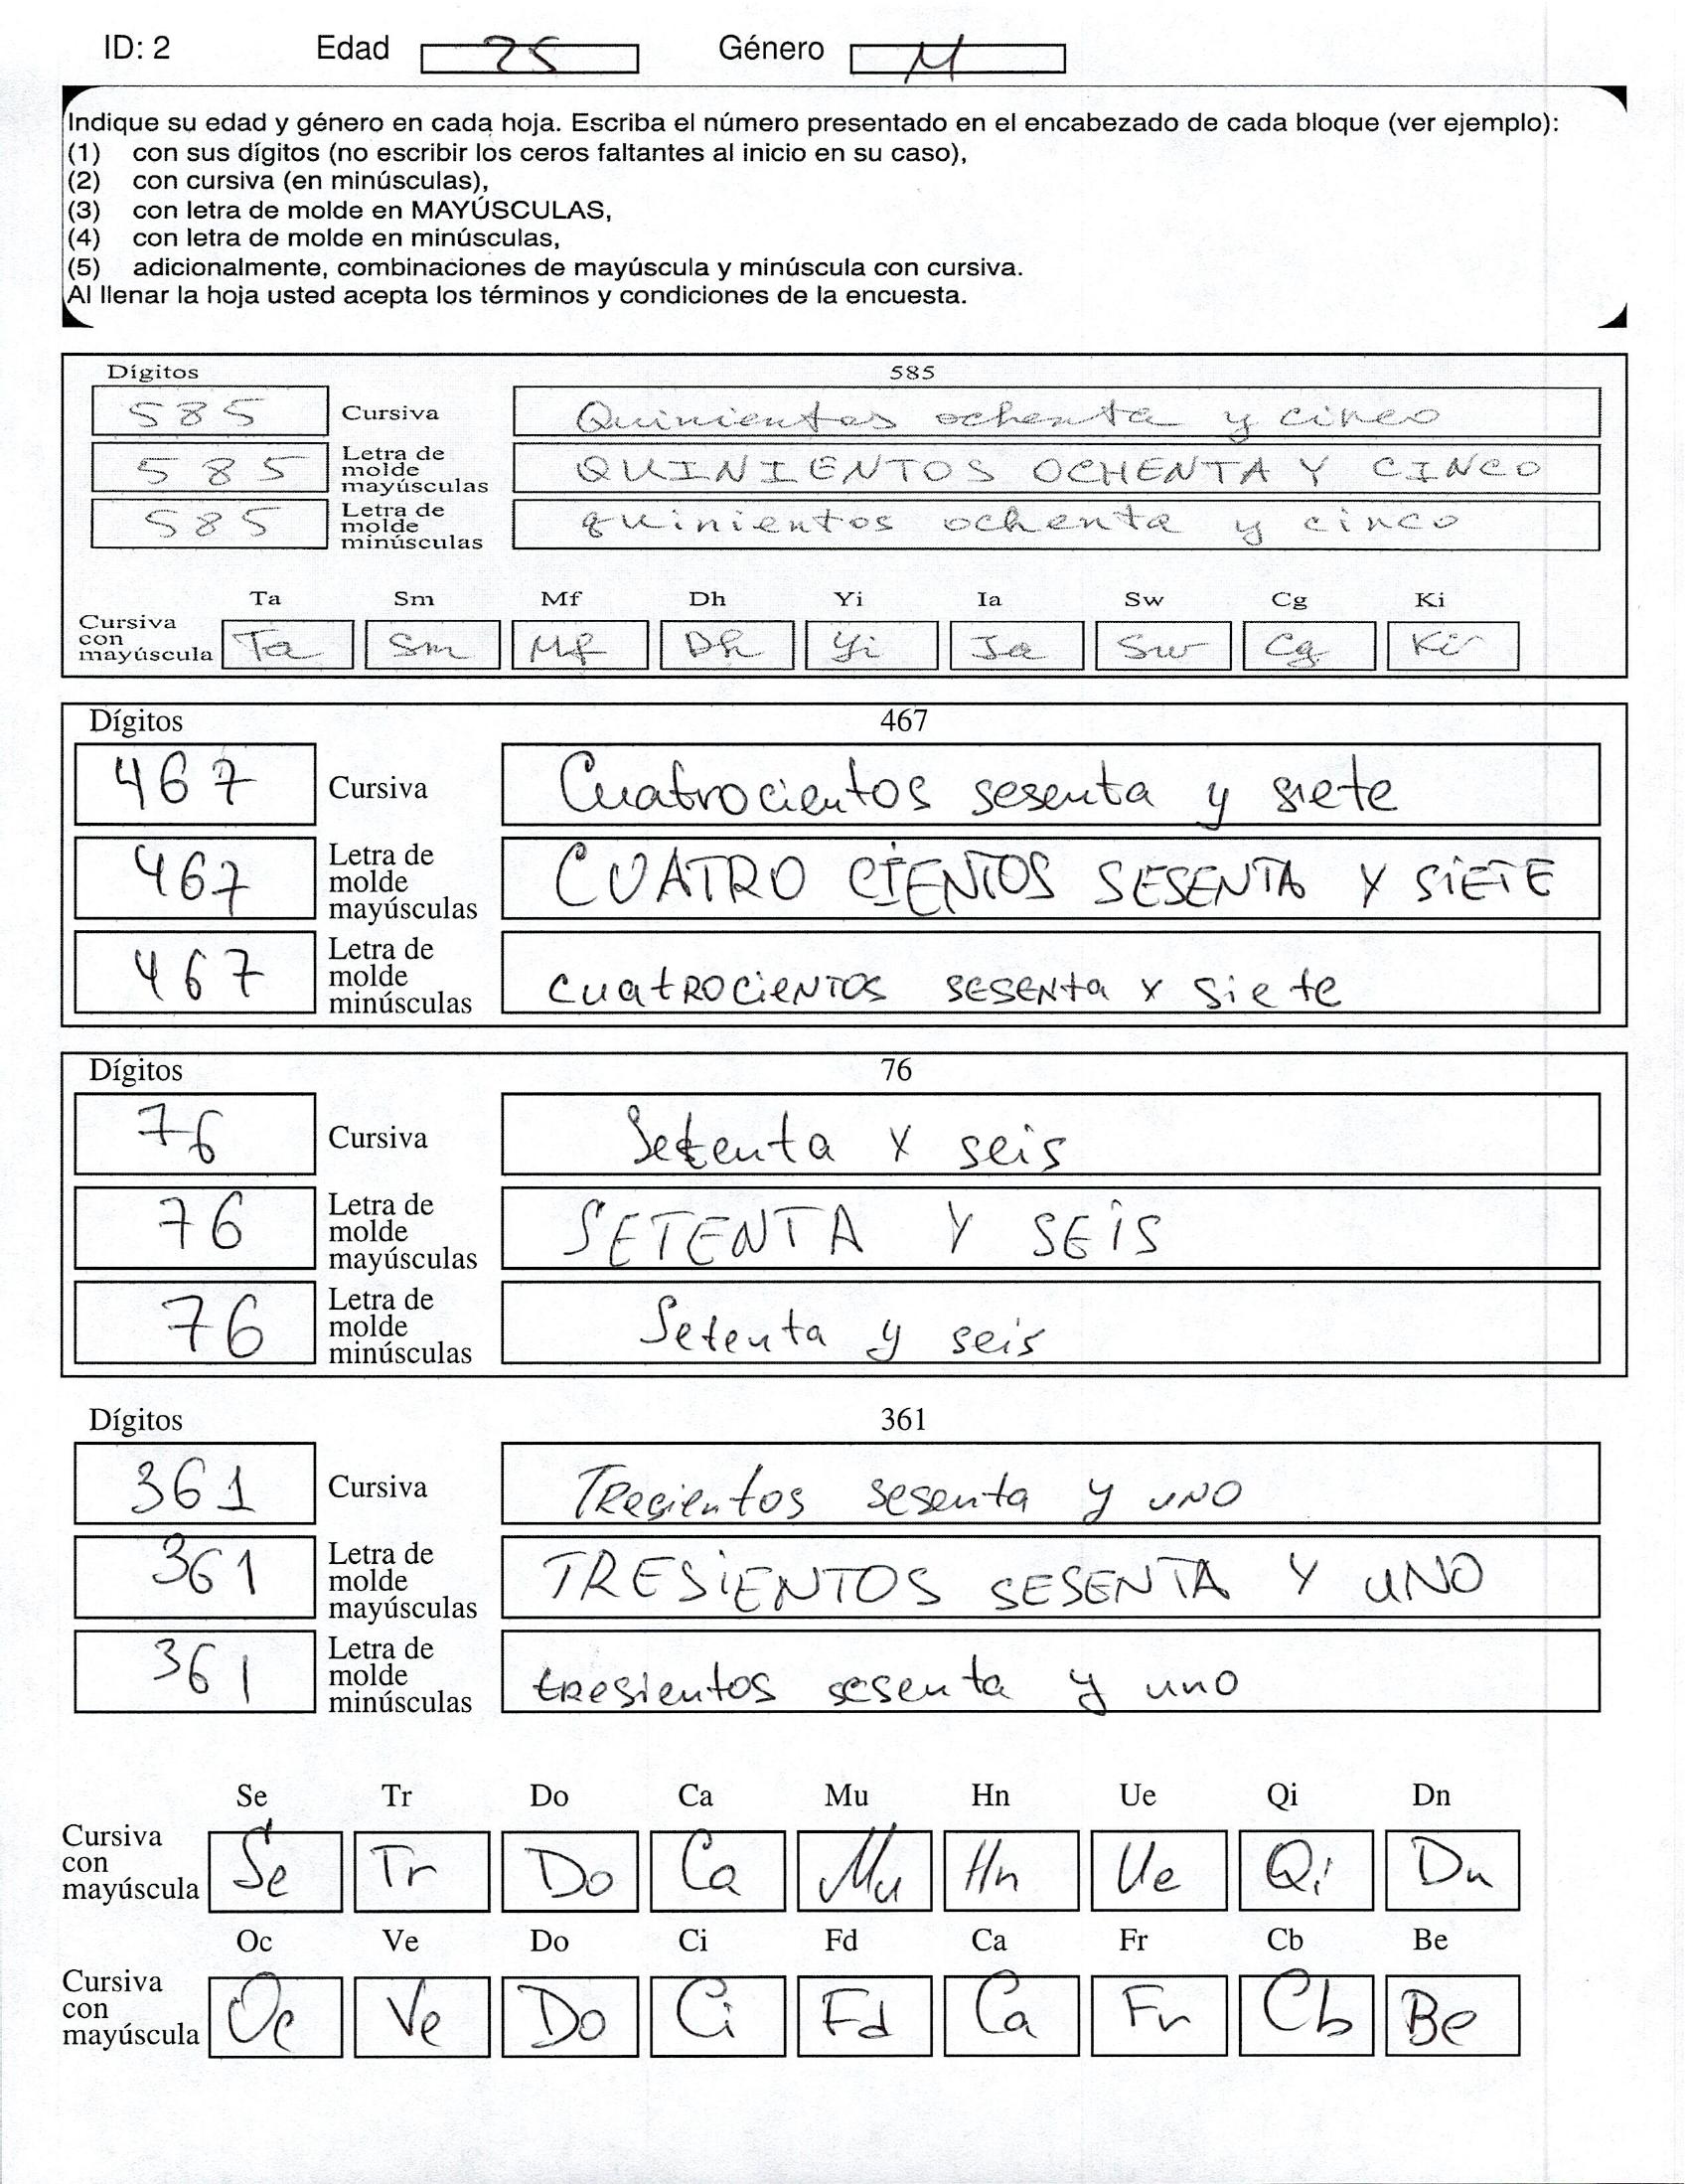 ID: 2 Edad 25 Género M
Indique su edad y género en cada hoja. Escriba el número presentado en el encabezado de cada bloque (ver ejemplo):
(1) con sus dígitos (no escribir los ceros faltantes al inicio en su caso),
(2) con cursiva (en minúsculas),
(3) con letra de molde en MAYÚSCULAS,
(4) con letra de molde en minúsculas,
(5) adicionalmente, combinaciones de mayúscula y minúscula con cursiva.
Al llenar la hoja usted acepta los términos y condiciones de la encuesta.
Dígitos 585
585 Cursiva Quinientos ochenta y cinco
585 Letra de molde mayúsculas QUINIENTOS OCHENTA Y CINCO
585 Letra de molde minúsculas quinientos ochenta y cinco
Ta Sm Mf Dh Yi Ia Sw Cg Ki
Cursiva con mayúscula Ta Sm Mf Dh Yi Ia Sw Cg Ki
Dígitos 467
467 Cursiva Cuatrocientos sesenta y siete
467 Letra de molde mayúsculas CUATRO CIENTOS SESENTA Y SIETE
467 Letra de molde minúsculas cuatROCieNTOS SESENta y siete
Dígitos 76
76 Cursiva Setenta y seis
76 Letra de molde mayúsculas SETENTA Y SEiS
76 Letra de molde minúsculas Setenta y seis
Dígitos 361
361 Cursiva TResientos sesenta y uNO
361 Letra de molde mayúsculas TRESiENTOS SESENTA Y UNO
361 Letra de molde minúsculas tResientos sesenta y uno
Se Tr Do Ca Mu Hn Ue Qi Dn
Cursiva con mayúscula Se Tr Do Ca Mu Hn Ue Qi Dn
Oc Ve Do Ci Fd Ca Fr Cb Be
Cursiva con mayúscula Oc Ve Do Ci Fd Ca Fr Cb Be